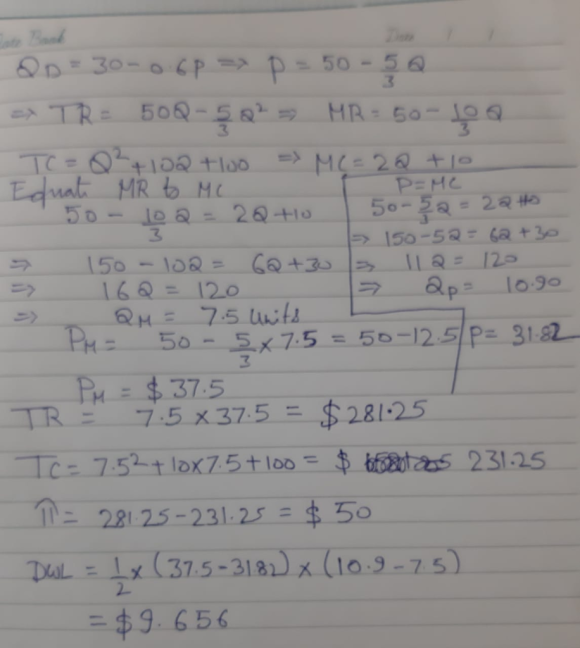 Date / /
Q_D = 30 - 0.6P => P = 50 - 5/3 Q
=> TR = 50Q - 5/3 Q² => MR = 50 - 10/3 Q
TC = Q² + 10Q + 100 => MC = 2Q + 10
Equate MR to MC
50 - 10/3 Q = 2Q + 10
=> 150 - 10Q = 6Q + 30
=> 16Q = 120
=> Q_M = 7.5 units
P = MC
50 - 5/3 Q = 2Q + 10
=> 150 - 5Q = 6Q + 30
=> 11Q = 120
=> Q_P = 10.90
P = 31.82
P_M = 50 - 5/3 × 7.5 = 50 - 12.5
P_M = $37.5
TR = 7.5 × 37.5 = $281.25
TC = 7.5² + 10×7.5 + 100 = $ 231.25
π = 281.25 - 231.25 = $50
DWL = 1/2 × (37.5 - 3182) × (10.9 - 7.5)
= $9.656